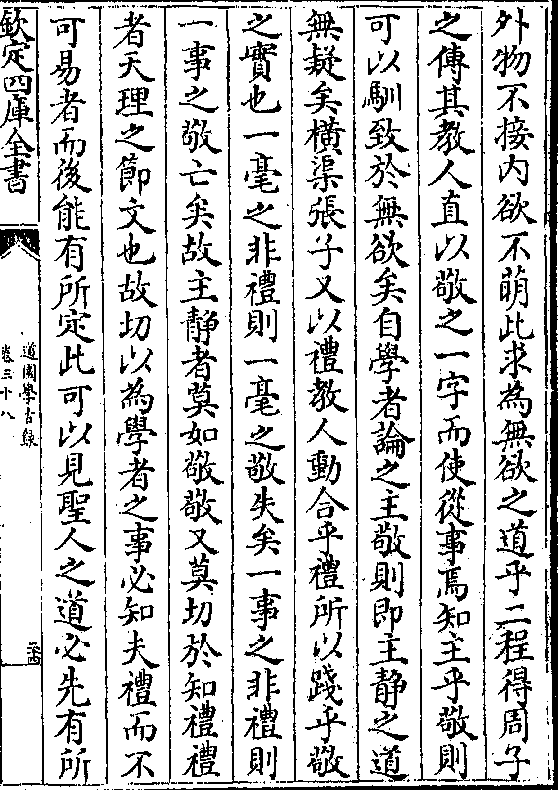 外物不接内欲不萌此求為無欲之道乎二程得周子
之傳其教人直以敬之一字而使從事焉知主乎敬則
可以馴致於無欲矣自學者論之主敬則即主静之道
無疑矣橫渠張子又以禮教人動合乎禮所以踐乎敬
之實也一毫之非禮則一毫之敬失矣一事之非禮則
一事之敬亡矣故主靜者莫如敬敬又莫切於知禮禮
者天理之節文也故切以為學者之事必知夫禮而不
可易者而後能有所定此可以見聖人之道必先有所
欽定四庫全書
道園學古録
卷三十八